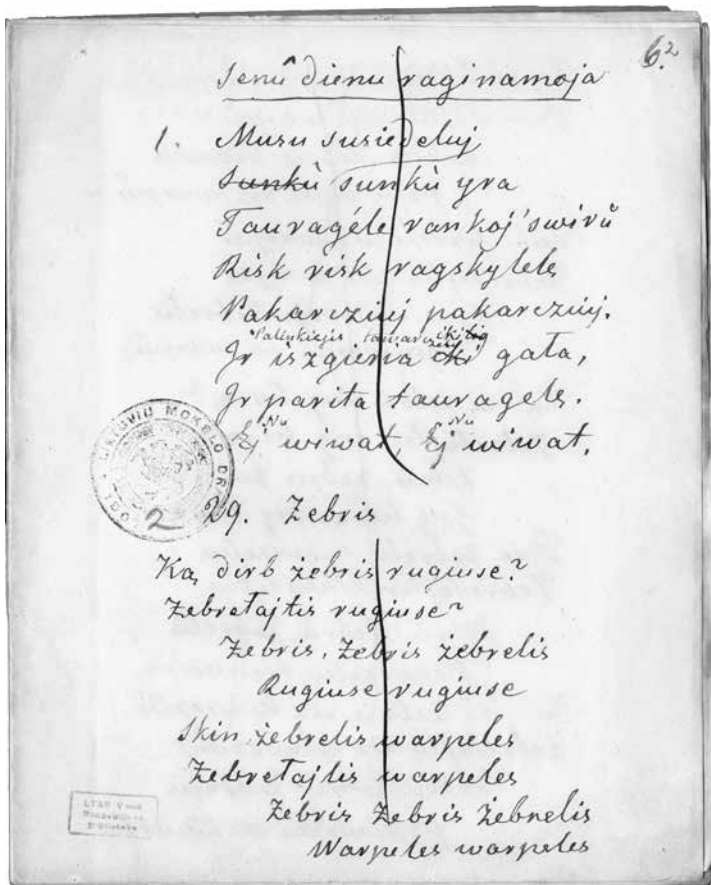 6.²
Senû dienu raginamoja
1. Musu susiedeluj
Sunkù sunkù yra
Tauragéle rankoj' swirů
Risk risk ragskylele
Pakarcziuj pakarcziuj.
Pallykiejis towarcziuj iki tig
Ir iszgieria iki gała,
Ir parita tauragele.
Nu Nu
Ej wiwat, Ej wiwat.
LIETUVIU MOKSLO DR
2
29. Żebris
Ką dirb żebris rugiuse?
Żebretajtis rugiuse?
Żebris, Żebris żebrelis
Rugiuse rugiuse
Skin żebrelis warpeles
Żebretajtis warpeles
Żebris Żebris Żebrelis
Warpeles warpeles
LTSR
Biblioteka